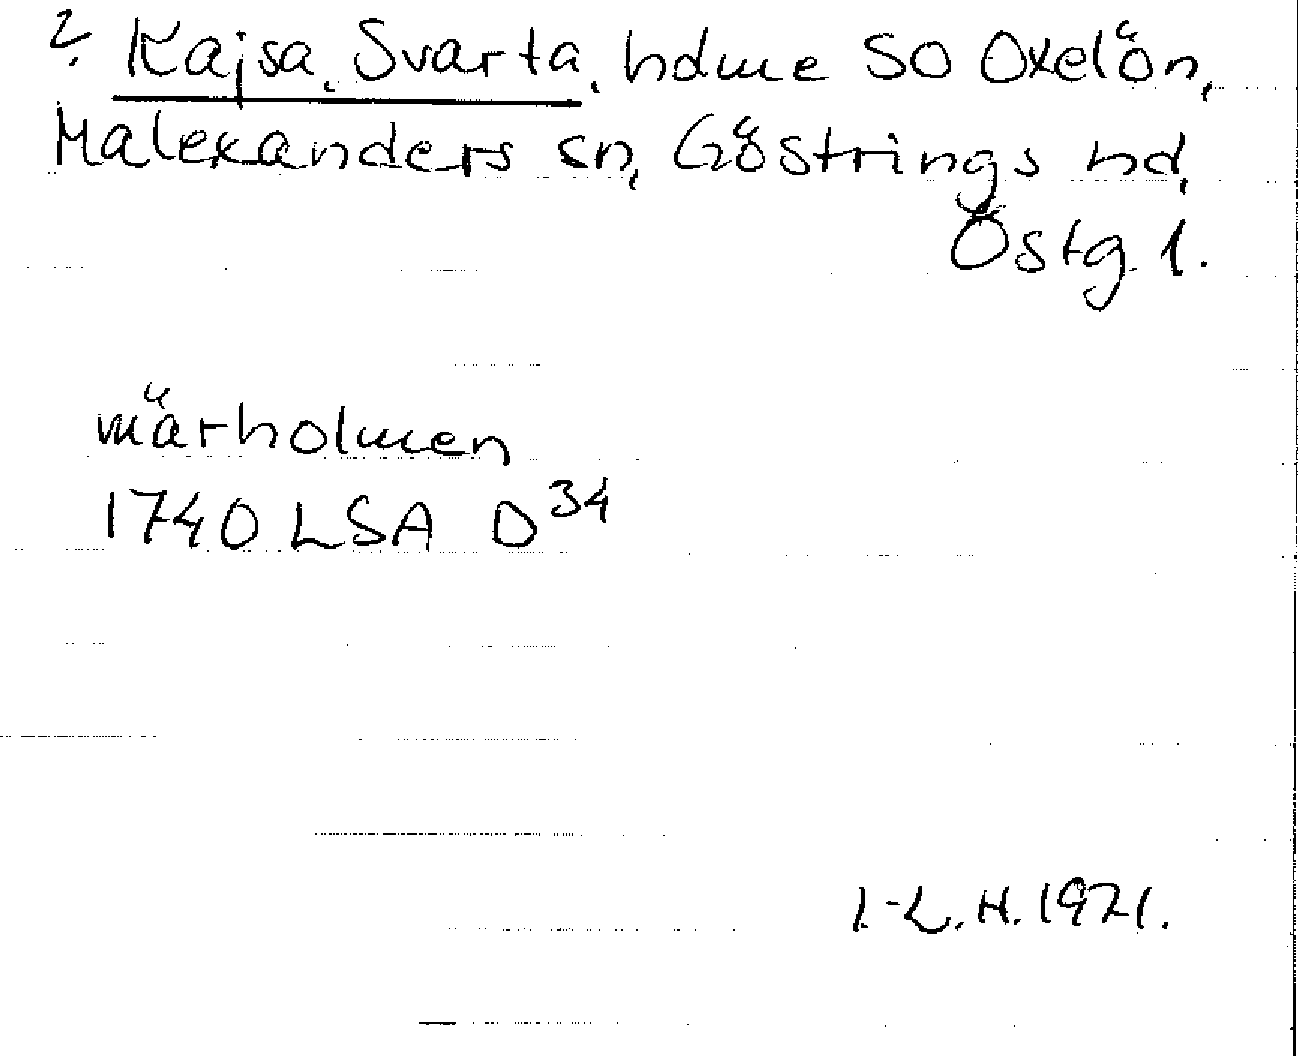 ? Kajsa, Svarta, hdme SO Oxelön,
Malexanders sn, Göstrings hd,
Östg. l.
märholmen
1740 LSA D³⁴
I.-L. H. 1971.